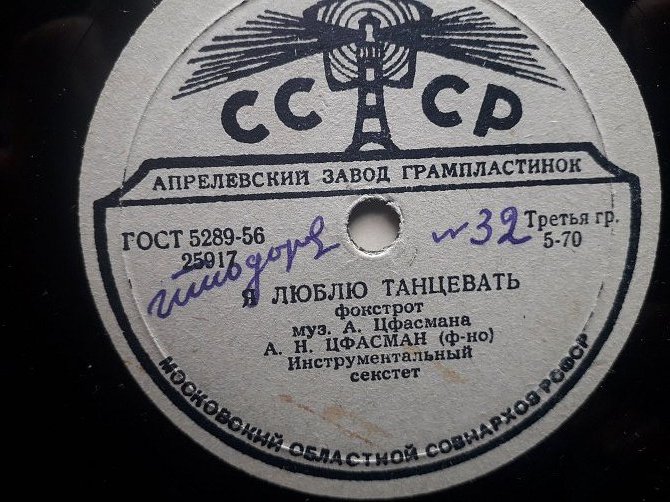 СССР
АПРЕЛЕВСКИЙ ЗАВОД ГРАМПЛАСТИНОК
ГОСТ 5289-56
25917
№ 32
Третья гр.
5-70
Я ЛЮБЛЮ ТАНЦЕВАТЬ
фокстрот
муз. А. Цфасмана
А. Н. ЦФАСМАН (ф-но)
Инструментальный
секстет
МОСКОВСКИЙ ОБЛАСТНОЙ СОВНАРХОЗ РСФСР